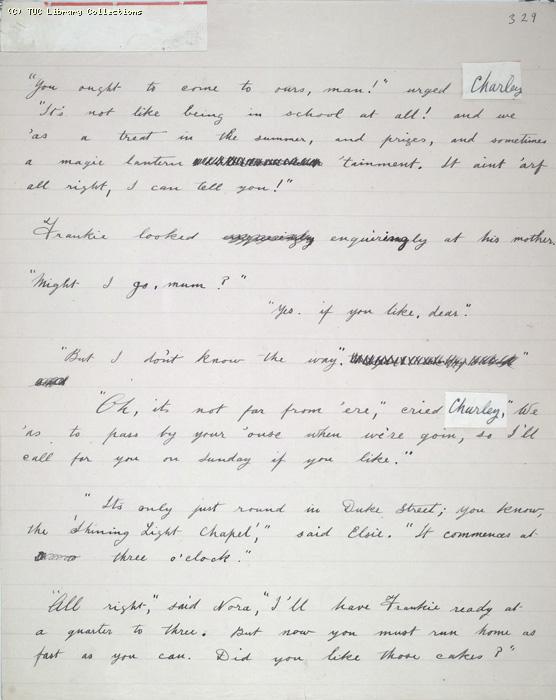 (C) TUC Library Collections
329
"You ought to come to ours, man!" urged Charley
"It's not like being in school at all! and we
'as a treat in the summer, and prizes, and sometimes
a magic lantern 'tainment. It aint 'arf
all right, I can tell you!"
Frankie looked enquiringly at his mother.
"Might I go, mum?"
"Yes. if you like, dear".
"But I don't know the way".
"Oh, its not far from 'ere," cried Charley, "We
'as to pass by your 'ouse when we're goin, so I'll
call for you on Sunday if you like."
"Its only just round in Duke Street; you know,
the 'Shining Light Chapel'," said Elsie. "It commences at
three o'clock."
"All right," said Nora, "I'll have Frankie ready at
a quarter to three. But now you must run home as
fast as you can. Did you like those cakes?"